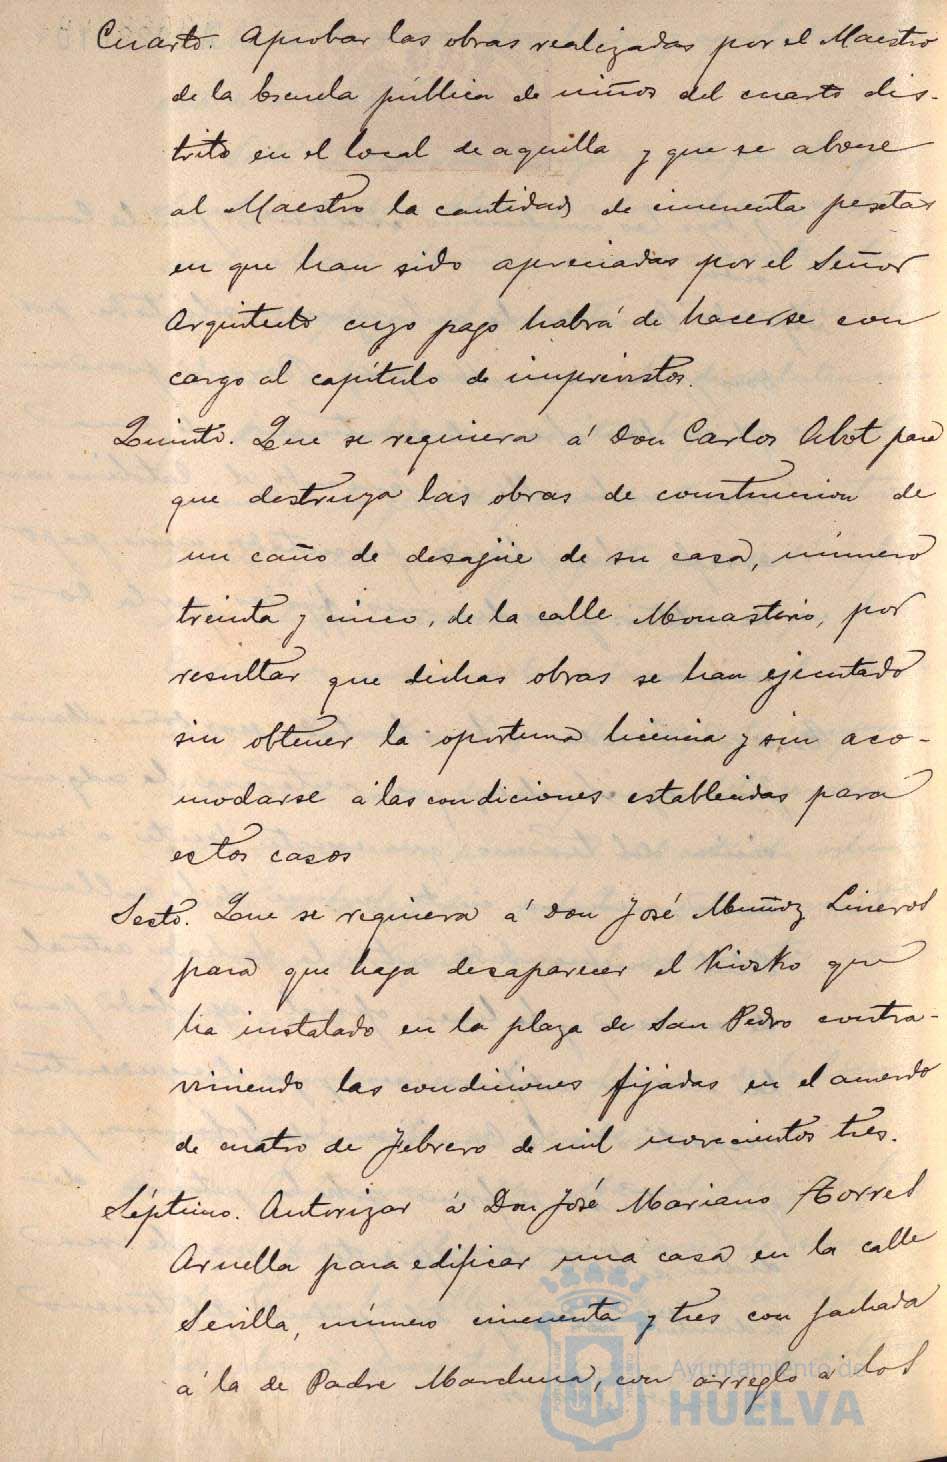 Cuarto. Aprobar las obras realizadas por el Maestro
de la Escuela pública de niños del cuarto dis-
trito en el local de aquilla y que se abone
al Maestro la cantidad de cincuenta pesetas
en que han sido apreciadas por el Señor
Arquitecto cuyo pago habrá de hacerse con
cargo al capítulo de imprevistos.
Quinto. Que se requiera á Don Carlos Abot para
que destruya las obras de construccion de
un caño de desagüe de su casa, número
treinta y cinco, de la calle Monasterio, por
resultar que dichas obras se han ejecutado
sin obtener la oportuna licencia y sin aco-
modarse á las condiciones establecidas para
estos casos
Sesto. Que se requiera á Don José Muñoz Lineros
para que haga desaparecer el Kiosko que
ha instalado en la plaza de San Pedro contra-
viniendo las condiciones fijadas en el acuerdo
de cuatro de febrero de mil novecientos tres.
Séptimo. Autorizar á Don José Mariano Torres
Arnella para edificar una casa en la calle
Sevilla, número cincuenta y tres con fachada
á la de Padre Marchena, con arreglo á los
Ayuntamiento de
HUELVA